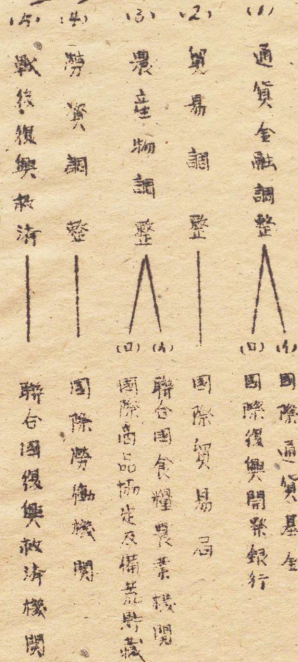 (1) 通貨金融調整
(イ) 國際通貨基金
(ロ) 國際復興開発銀行
(2) 貿易調整
國際貿易局
(3) 農産物調整
(イ) 聯合國食糧農業機関
(ロ) 國際商品協定及備荒貯藏
(4) 勞資調整
國際勞働機関
(5) 戰後復興救済
聯合國復興救済機関